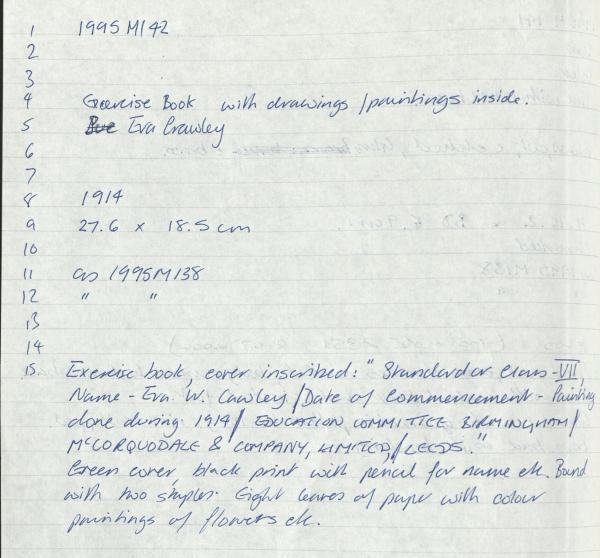 1 1995M142
2
3
4 Exercise Book with drawings/paintings inside.
5 Eva Crawley
6
7
8 1914
9 27.6 x 18.5cm
10
11 as 1995M138
12 " "
13
14
15. Exercise book, cover inscribed: "Standard or Class - VII
Name - Eva. W. Cawley/Date of Commencement - Painting
done during 1914/ EDUCATION COMMITTEE BIRMINGHAM/
McCORQUODALE & COMPANY, LIMITED,/LEEDS."
Green cover, black print with pencil for name etc. Bound
with two staples. Eight leaves of paper with colour
paintings of flowers etc.